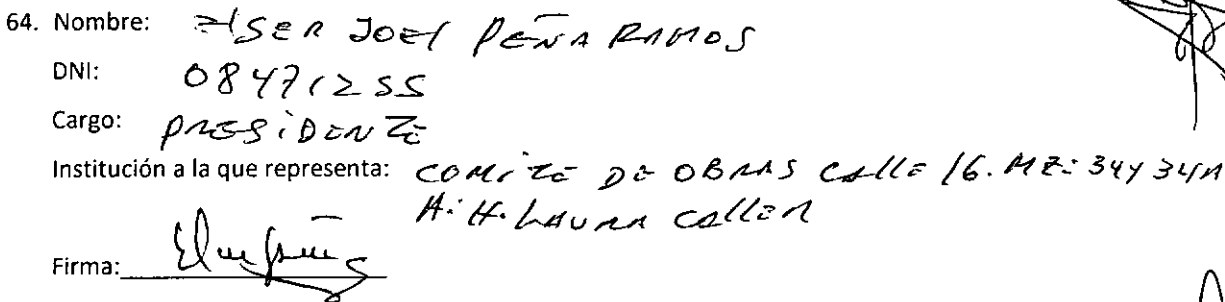 64. Nombre: ELSER JOEL PEÑA RAMOS
DNI: 08471255
Cargo: PRESIDENTE
Institución a la que representa: COMITE DE OBRAS CALLE 16. MZ: 34 y 34A
A. H. LAURA CALLER
Firma: